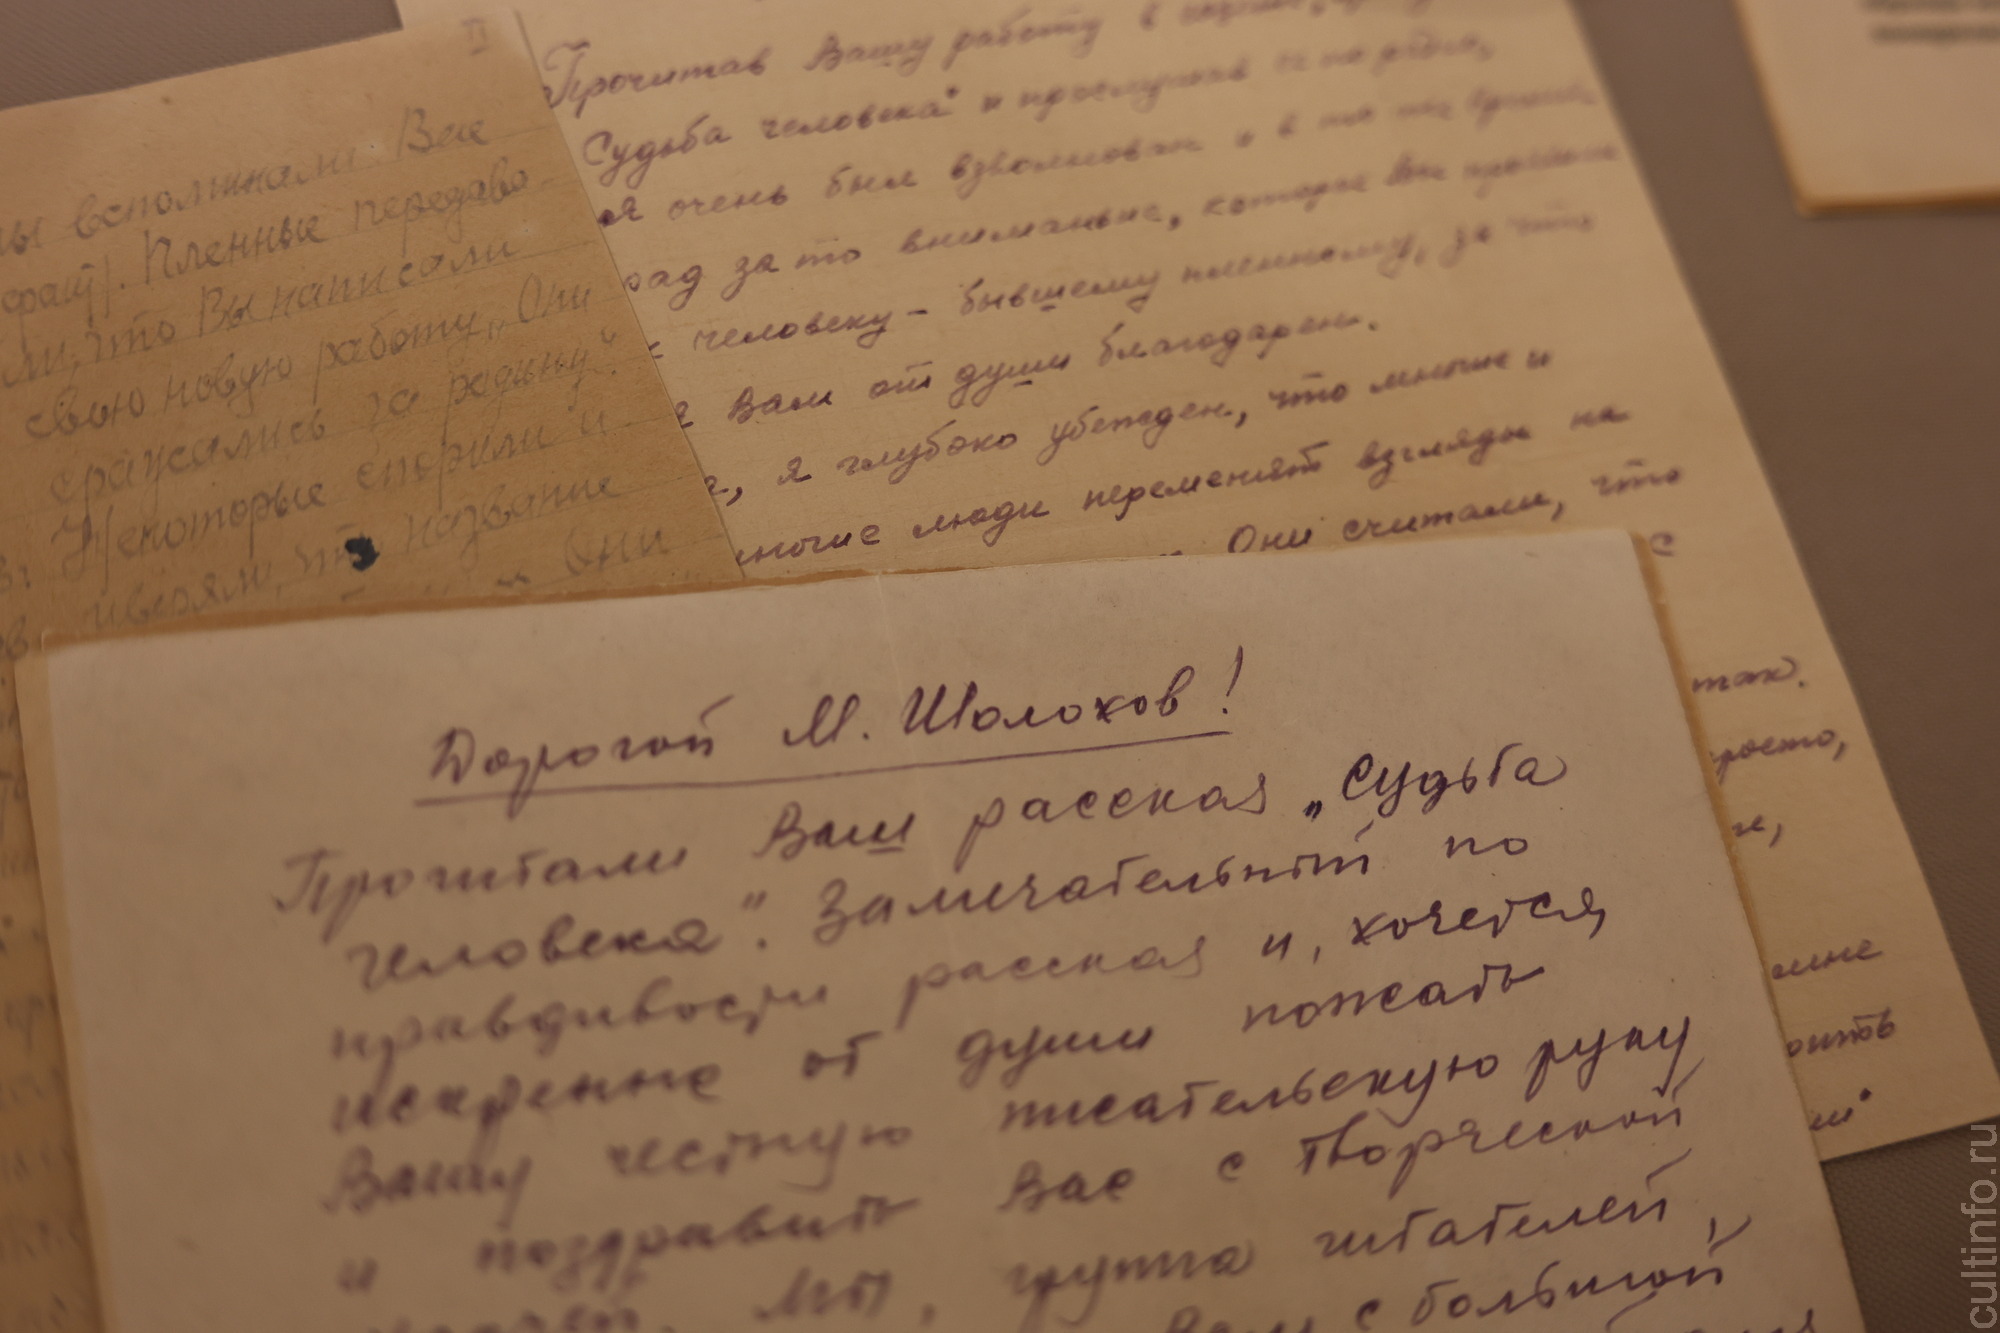 II
вспоминали Вас
фашт). Пленные передава-
ли, что Вы написали
свою новую работу „Они
сражались за родину“.
Некоторые спорили и
уверяли, что название
Они
Прочитав Вашу работу в
Судьба человека" и прослушав её по радио,
я очень был взволнован и в то же время
рад за то внимание, которое Вы
человеку - бывшему пленному, за что
я Вам от души благодарен.
, я глубоко убежден, что многие и
многие люди переменят взгляды на
Они считали, что
с
так.
просто,
мне
Дорогой М. Шолохов!
Прочитали Ваш рассказ „Судьба
человека". Замечательный по
правдивости рассказ и, хочется,
искренне от души пожать
Вашу честную писательскую руку
и поздравить Вас с творческой
Мы, группа читателей,
Вам с большой
cultinfo.ru